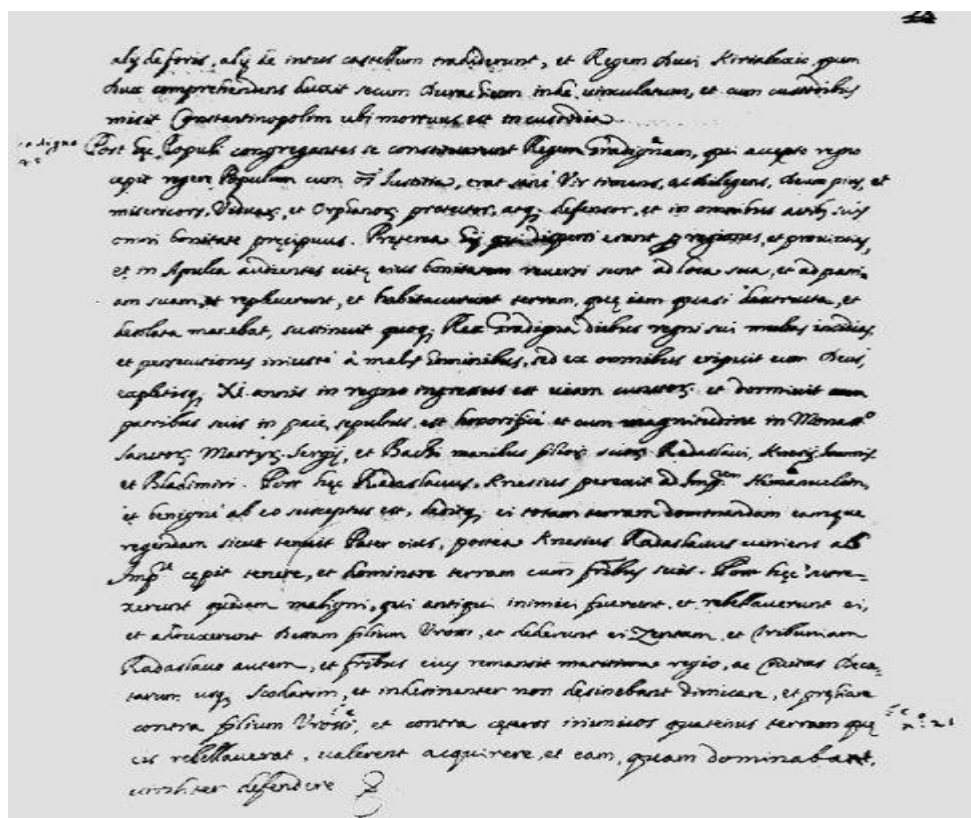 alij de foris, alij de intus castellum tradiderunt, et Regem Duci Kirialexio, quem
Dux comprehendens duxit secum Durachium inde vinculatum, et cum custodibus
misit Constantinopolim ubi mortuus est in custodia
Post hęc Populi congregantes se constituerunt Regem Gradignam, qui accepto regno
cępit regere Populum cum oi Iustitia, erat enim Vir timens, ac diligens Deum pius, et
misericors, Viduarum, et Orphanorum protector, atq; defensor, et in omnibus actibus suis
omni bonitate pręcipuus. Preterea hij qui dispersi erant per regiones, et provincias,
et in Apulia audientes vitę eius bonitatem reversi sunt ad loca sua, et ad patri-
am suam, et repleverunt, et habitaverunt terram, quę iam quasi destructa, et
desolata manebat, sustinuit quoq; Rex Gradigna diebus regni sui multas insidias,
et persecutiones iniustè à malis hominibus, sed ex omnibus eripuit eum Deus,
expletisq; XI. annis in regno ingressus est viam universę et dormivit cum
patribus suis in pace, sepultus est honorificè et cum magnitudine in Monast.o
Sanctorum Martyrum Sergij, et Bachi manibus filiorum suorum Radaslavi,
et Bladimiri. Post hęc Radaslavus Knesius perexit ad Imp.em
et benignè ab eo susceptus est, deditq; ei totam terram dominandam eamque
regendam sicut tenuit Pater eius, postea Knesius Radaslavus veniens ab
Imp.e cępit tenere, et dominare terram cum fribus suis. Post hęc surre-
xerunt quidam maligni, qui antiqui inimici fuerunt, et rebellaverunt ei,
et adduxerunt Dessam filium Vrossi, et dederunt ei Zentam, et Tribuniam
Radaslavo autem, et fribus eius remansit maritima regio, ac Civitas Deca-
tarum usq; Scodarim, et indesinenter non desinebant dimicare, et pręliare
contra filium Vrossi, et contra cęteros inimicos quatenus terram quę
eis rebellaverat, valerent acquirere, et eam, quam dominabant,
viriliter defendere